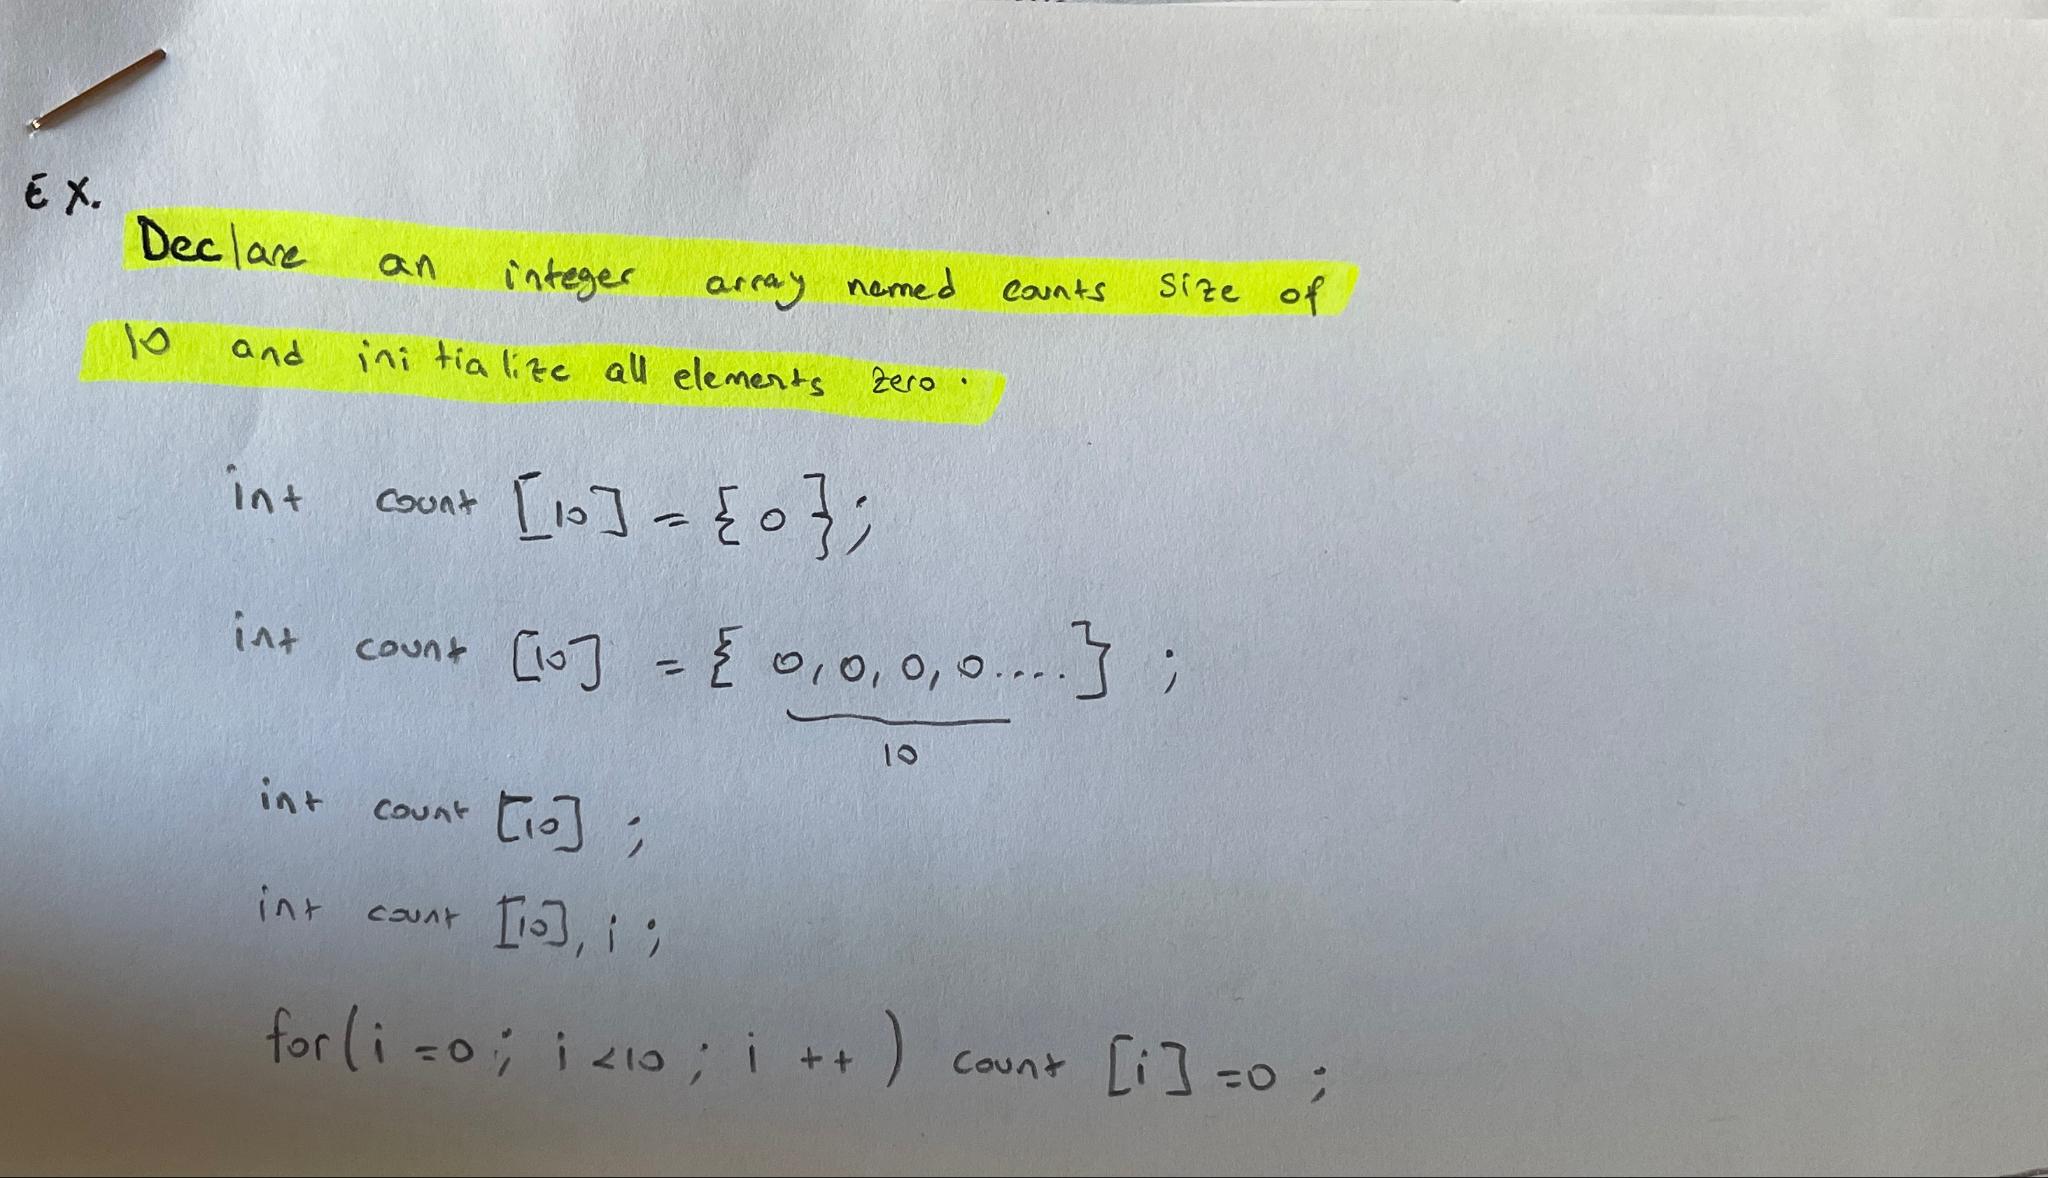 EX.
Declare an integer array named counts size of
10 and initialize all elements zero.
int count [10] = {0};
int count [10] = { 0,0,0,0.... } ;
10
int count [10] ;
int count [10], i ;
for(i=0; i<10; i++) count [i]=0 ;